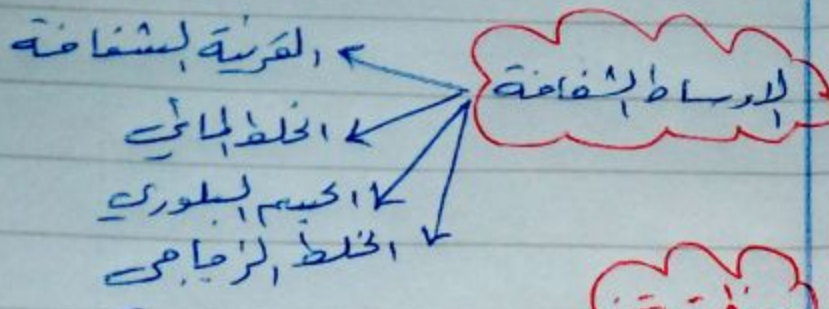 الاوساط الشفافة
القرنية الشفافة
الخلط المائي
الجسم البلوري
الخلط الزجاجي